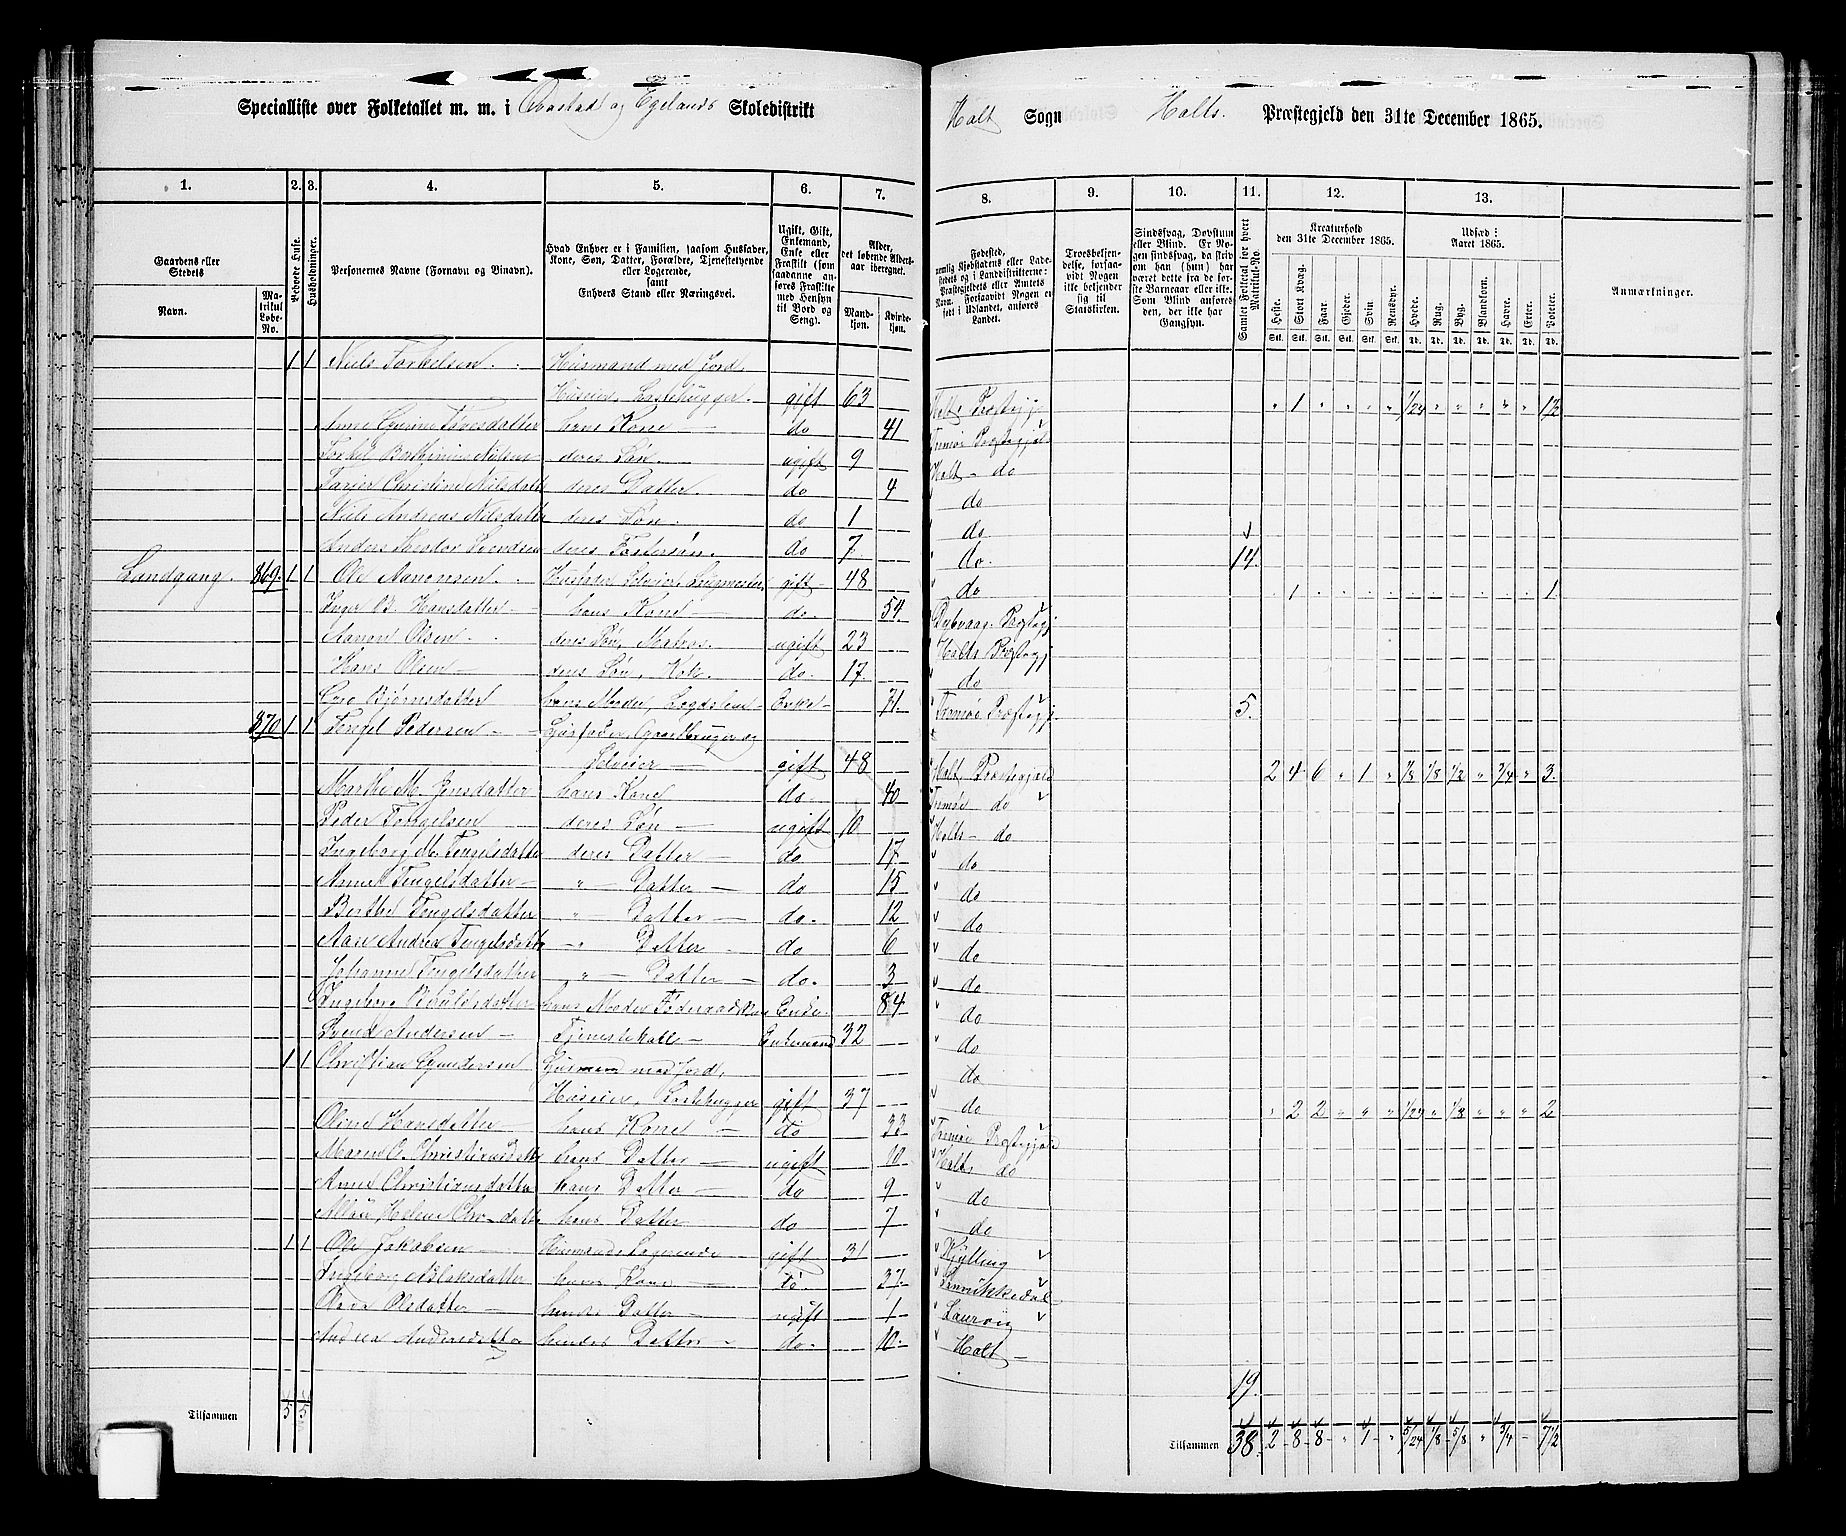 Specialliste over Folketallet m. m. i Qvastad og Egelands Skoledistrikt
Holt Sogn Holts. Præstegjeld den 31te December 1865.
1. 2. 3. 4. 5. 6. 7. 8. 9. 10. 11. 12. 13.
Gaardens eller Stedets
Navn.
Matrikul Løbe-No.
Beboede Huse.
Husholdninger.
Personernes Navne (Fornavn og Tilnavn).
Hvad Enhver er i Familien, saasom Husfader, Kone, Søn, Datter, Forældre, Tjenestetyende eller Logerende, samt Enhvers Stand eller Næringsvei.
Ugift, Gift, Enkemand, Enke eller Fraskilt (som saadanne anføres Fraskilte med Hensyn til Bord og Seng).
Alder, det løbende Aldersaar iberegnet.
Mandkjøn. Kvindekjøn.
Fødested,
Troesbekjendelse, forsaavidt Nogen ikke bekjender sig til Statskirken.
Sindssvag, Døvstum eller Blind. Er Nogen sindssvag, da skrives om han (hun) har været dette fra de første Barneaar eller ikke. Som Blind anføres den, der ikke har Gangsyn.
Samlet Folketal for hvert Matrikul-No.
Kreaturhold den 31te December 1865.
Heste. Stort Kvæg. Faar. Gjeder. Svin. Rensdyr.
Udsæd i Aaret 1865.
Hvede. Rug. Byg. Blandkorn. Havre. Erter. Poteter.
Anmærkninger.
1 1 Niels Torkelsen Husmand med Jord,
Huseier, Lastehugger. gift 63 Holts Præstegj. 1 1/24 1½
Anne Gurine Tovesdatter hans Kone do 41 Tromøe Præstegjel
Torkel Berthinius Nilsen deres Søn. ugift 9 Holt do
Tarjer Christine Nilsdatt deres Datter. do 4 do
Niels Andreas Nilsdatter deres Søn. do 1 do
Anders Theodor Svendsen deres Fostersøn. do 7 do 14.
Landgang. 869. 1 1 Ole Aanonsen Husfader Selveier gift 48 do 1 1
Inger B. Hansdatter hans Kone do. 54 Dybvaag Præstegj
Aanon Olsen deres Søn, Matros. ugift 23 Holts Præstegj
Hans Olsen deres Søn, Kok. do. 17. do
Bjørnsdatter hans Moder, Enke 71 Tromøe Præstegj. 5.
870 1 1 Tengel Pedersen Husfader, Gaardbruger og
Selveier gift 48 Holt Præstegjeld 2 4 6 1 1/8 1/8 1/2 3/4 3.
Marthe M. Jensdatter hans Kone do. 40 Tromøe do
Peder Tengelsen deres Søn ugift 10 Holts do
Ingeborg M. Tengelsdatter deres Datter do 17 do
Anne Tengelsdatter " Datter do 15 do
Berthe Tengelsdatter " Datter do. 12 do
Aase Andrea Tengelsdatte " Datter do 6 do
Johanne Tengelsdatter " Datter do. 3 do
Ingeborg hans Moder Enke 84 do
Svend Andersen Tjenestekall Enkemand 32 do
1 1 Christian Gundersen Husmand med Jord, do
Huseier, Lastehugger gift 37 do 2 2 1/24 1/8 2
Oline Hansdatter hans Kone do 33 Tromøe Præstegjeld
hans Datter ugift 10 Holts do
Anne Christiansdatter hans Datter do 9 do
Helene Chr. datte hans Datter do 7 do
1 1 Ole Jakobsen Husmands Logerende gift 31
Ingeborg Aslaksdatter hans Kone do 37
Olsdatter hendes Datter ugift 1 Laurvig
Andrea Andersdatter hendes Datter do. 10 Holt
19.
Tilsammen 5 5
Tilsammen 38. 2 8 8 " 1 " 5/24 1/8 5/8 " 3/4 7½